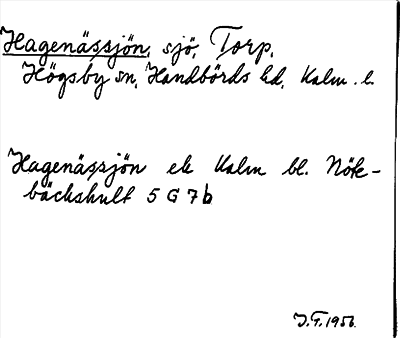 Hagenässjön, sjö, Torp,
Högsby sn, Handbörds hd, Kalm. l.
Hagenässjön ek Kalm bl. Nök-
bäckshult 5 G 7 b
J.T. 1956